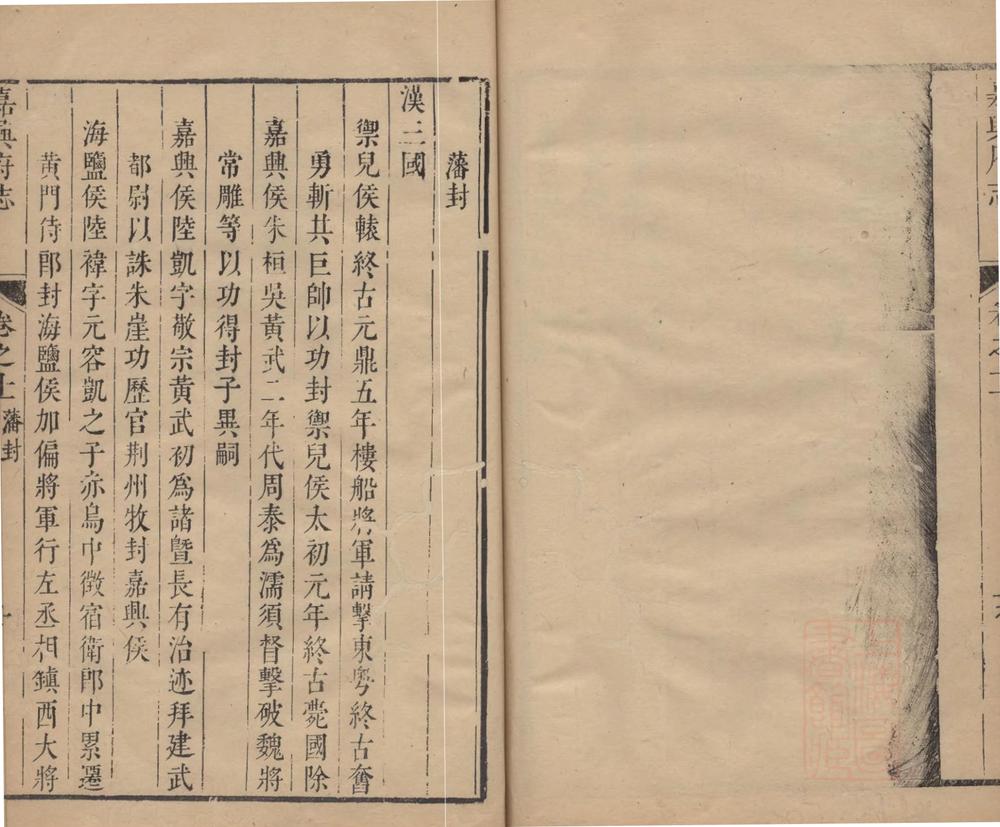 藩封
漢三國
禦兒侯轅終古元鼎五年樓船將軍請擊東粤終古奮
勇斬其巨帥以功封禦兒侯太初元年終古薨國除
嘉興侯朱桓吳黃武二年代周泰爲濡須督擊破魏將
常雕等以功得封子異嗣
嘉興侯陸凱字敬宗黃武初爲諸暨長有治迹拜建武
都尉以誅朱崖功歷官荆州牧封嘉興侯
海鹽侯陸禕字元容凱之子赤烏中徵宿衛郎中累遷
黃門侍郎封海鹽侯加偏將軍行左丞相鎮西大將
嘉興府志
卷之上 藩封